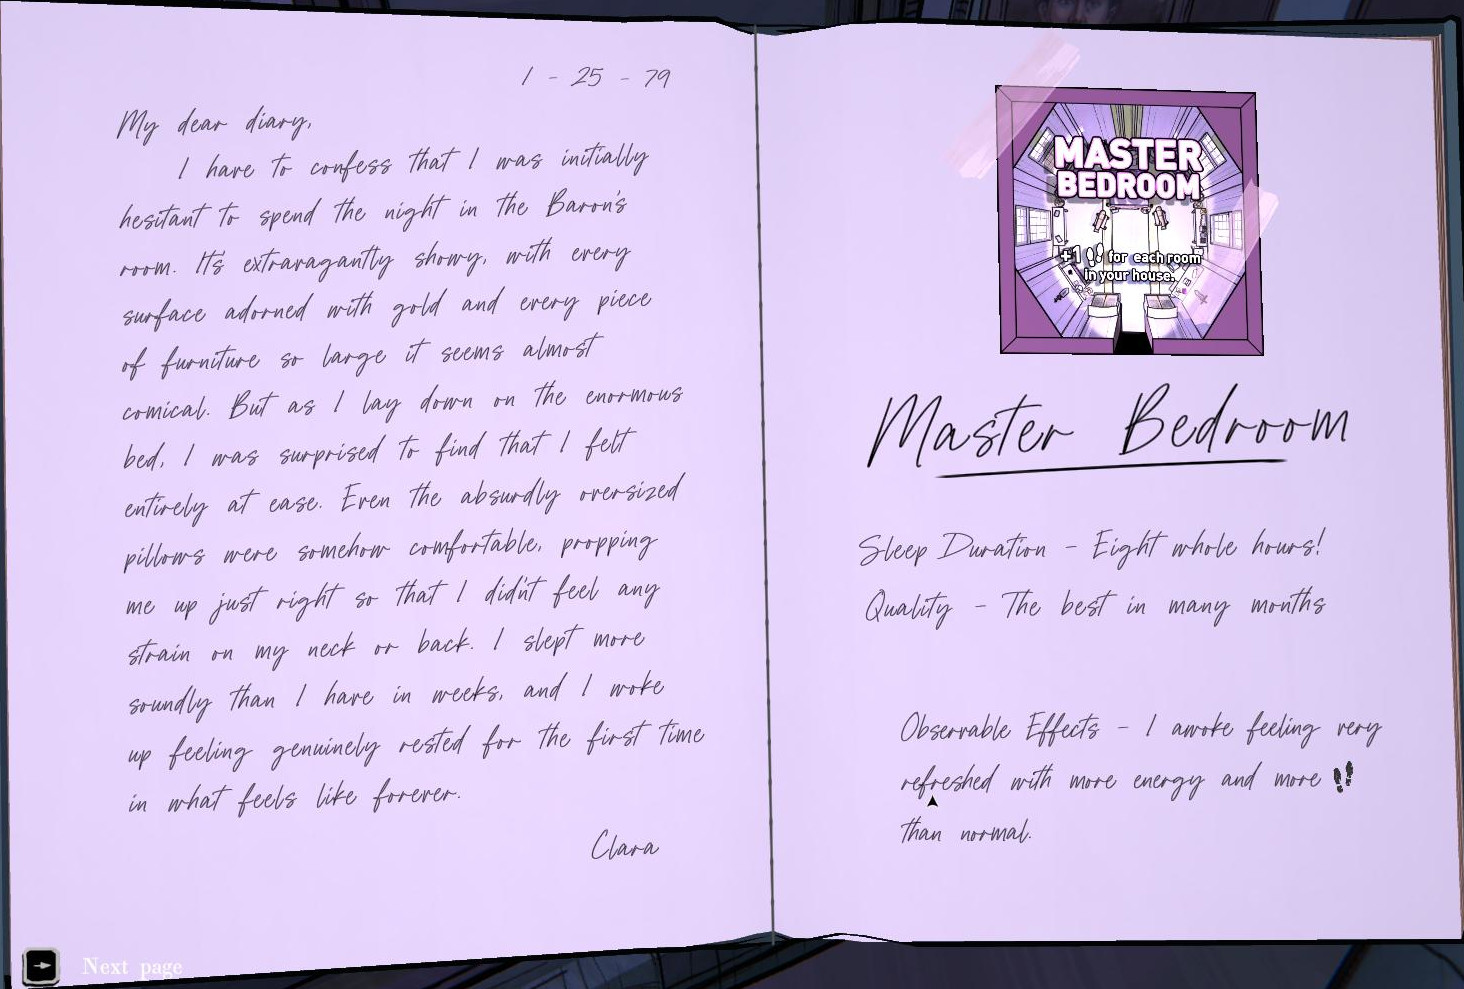 1 - 25 - 79
My dear diary,
I have to confess that I was initially
hesitant to spend the night in the Baron's
room. It's extravagantly showy, with every
surface adorned with gold and every piece
of furniture so large it seems almost
comical. But as I lay down on the enormous
bed, I was surprised to find that I felt
entirely at ease. Even the absurdly oversized
pillows were somehow comfortable, propping
me up just right so that I didn't feel any
strain on my neck or back. I slept more
soundly than I have in weeks, and I woke
up feeling genuinely rested for the first time
in what feels like forever.
Clara
Next page
MASTER
BEDROOM
+1 for each room
in your house.
Master Bedroom
Sleep Duration - Eight whole hours!
Quality - The best in many months
Observable Effects - I awoke feeling very
refreshed with more energy and more
than normal.